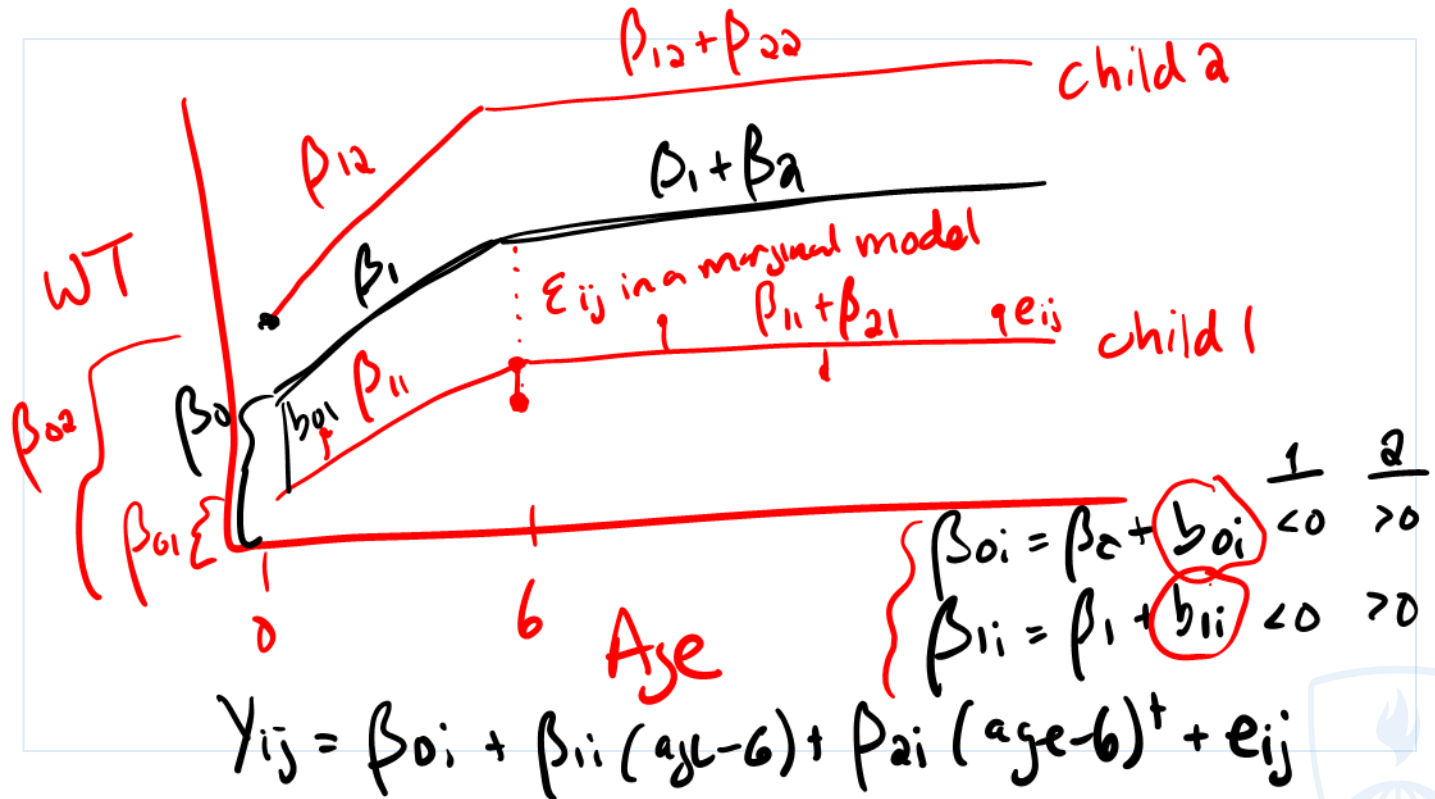 β12+β22
child 2
β12
β1+β2
WT
β1
εij in a marginal model
β11+β21
eij
child 1
β02
β0
b01
β11
β01
1 2
β0i = β0 + b0i <0 >0
β1i = β1 + b1i <0 >0
0
6
Age
Yij = β0i + β1i (age-6) + β2i (age-6)⁺ + eij